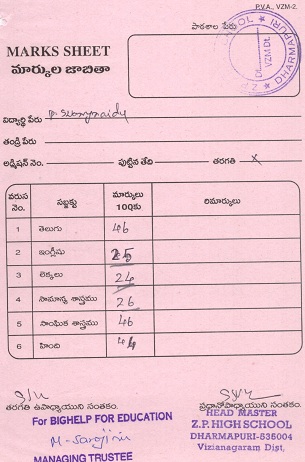 P.V.A., VZM-2.
పాఠశాల పేరు
MARKS SHEET
మార్కుల జాబితా
DHARMAPURI
VZM.Dt.
విద్యార్థి పేరు
తండ్రి పేరు
అడ్మిషన్ నెం. పుట్టిన తేది తరగతి X
వరుస నెం. సబ్జక్టు మార్కులు 100కు రిమార్కులు
1 తెలుగు 46
2 ఇంగ్లీషు 25
3 లెక్కలు 24
4 సామాన్య శాస్త్రము 26
5 సాంఘిక శాస్త్రము 46
6 హింది
తరగతి ఉపాధ్యాయుని సంతకం. ప్రధానోపాధ్యాయుని సంతకం.
For BIGHELP FOR EDUCATION
HEAD MASTER
Z.P. HIGH SCHOOL
DHARMAPURI-535004
Vizianagaram Dist,
M. Sarojini
MANAGING TRUSTEE